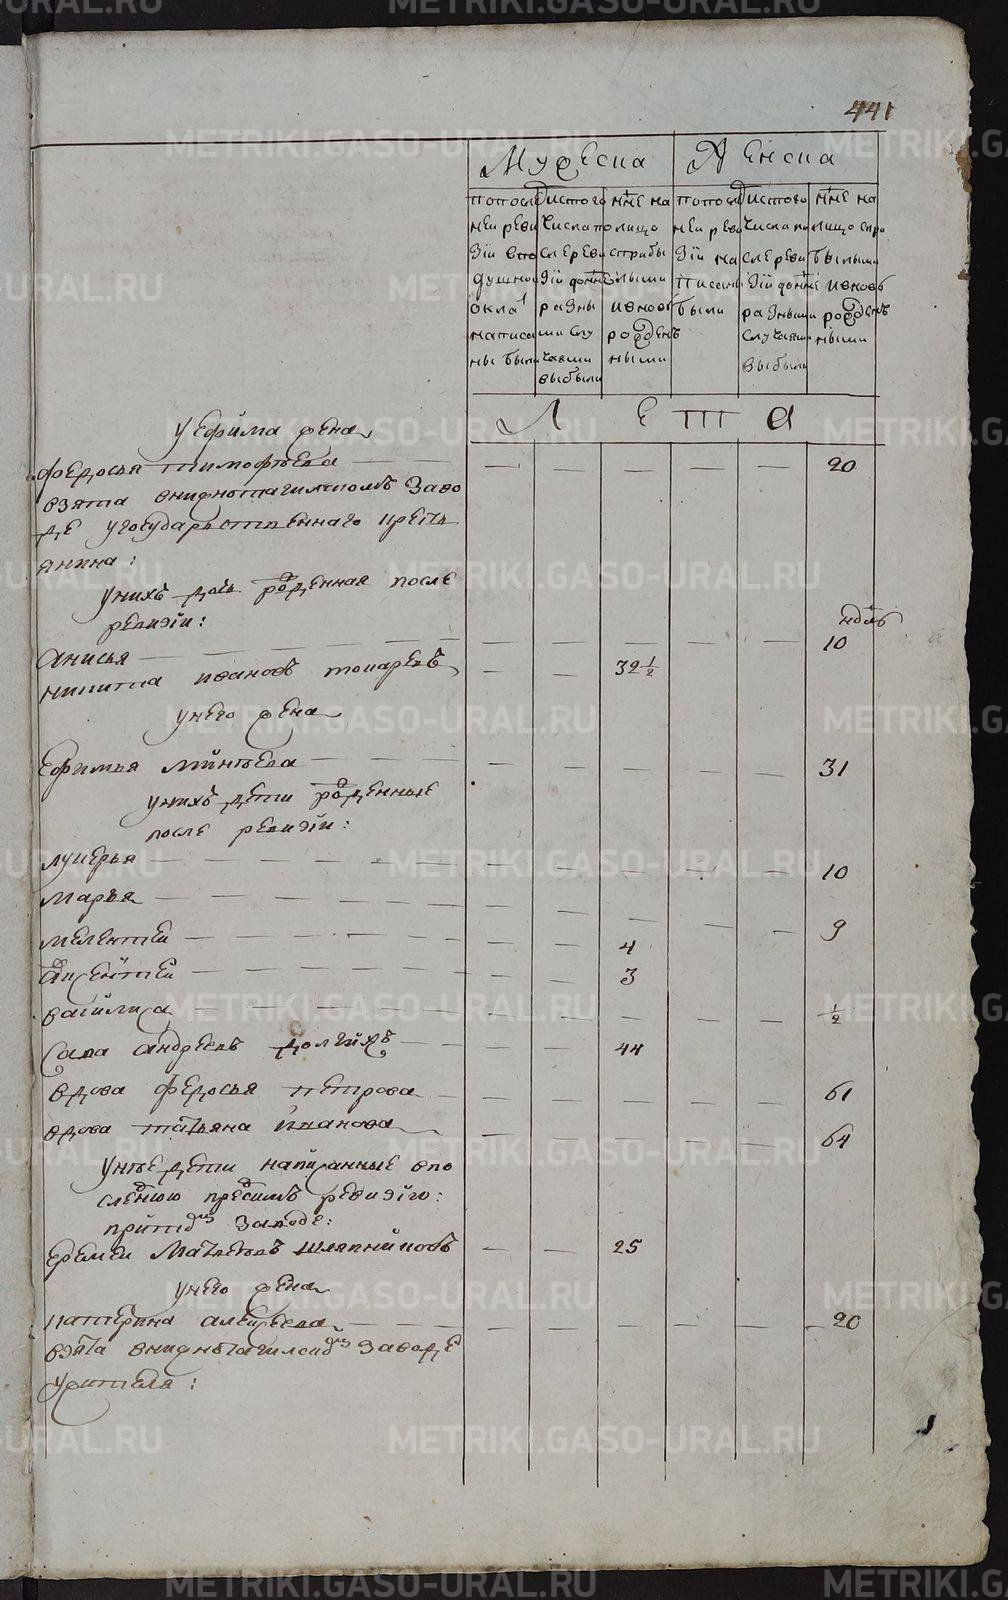 441
Мужеска
Женска
попосле
ней реви
зіи впо
душной
оклад
написа
ны были
Истого
числа по
слереви
зіи донне
разны
ми слу
чаями
выбыли
ннѣ на
лицо
сприбы
лыми
ивновь
рожден
ными
попосле
ней реви
зіи на
писаны
были
Истого
числа по
слереви
зіи донне
разными
случаями
выбыли
ннѣ на
лицо спри
былыми
ивновь
рожден
ными
Лета
уефима жена
федосья тимофеева — — — — — 20
взята внижнотагилскомъ заво
де угосударственнаго кресть
янина:
унихъ дочь рожденная после
ревизіи:
ндль
анисья — — — — — 10
никита ивановъ токаревъ — — 32 1/2
унего жена
Ефимья минѣева — — — — — 31
унихъ дети рожденные
после ревизіи:
лукерья — — — — — 10
марья — — — — — 9
мелентей — — 4
авксентей — — 3
василиса — — — — — 1/2
сава андреевъ долгихъ — — 44
вдова федосья петрова — — — — — 61
вдова татьяна иванова — — — — — 64
унѣе дети написанные впо
следнюю пред симъ ревизію:
притомъ заводе:
Еремей Матвеевъ шляпниковъ — — 25
унего жена
катерина алексеева — — — — — 20
взята внижнѣтагилском заводе
ужителя:
METRIKI.GASO-URAL.RU